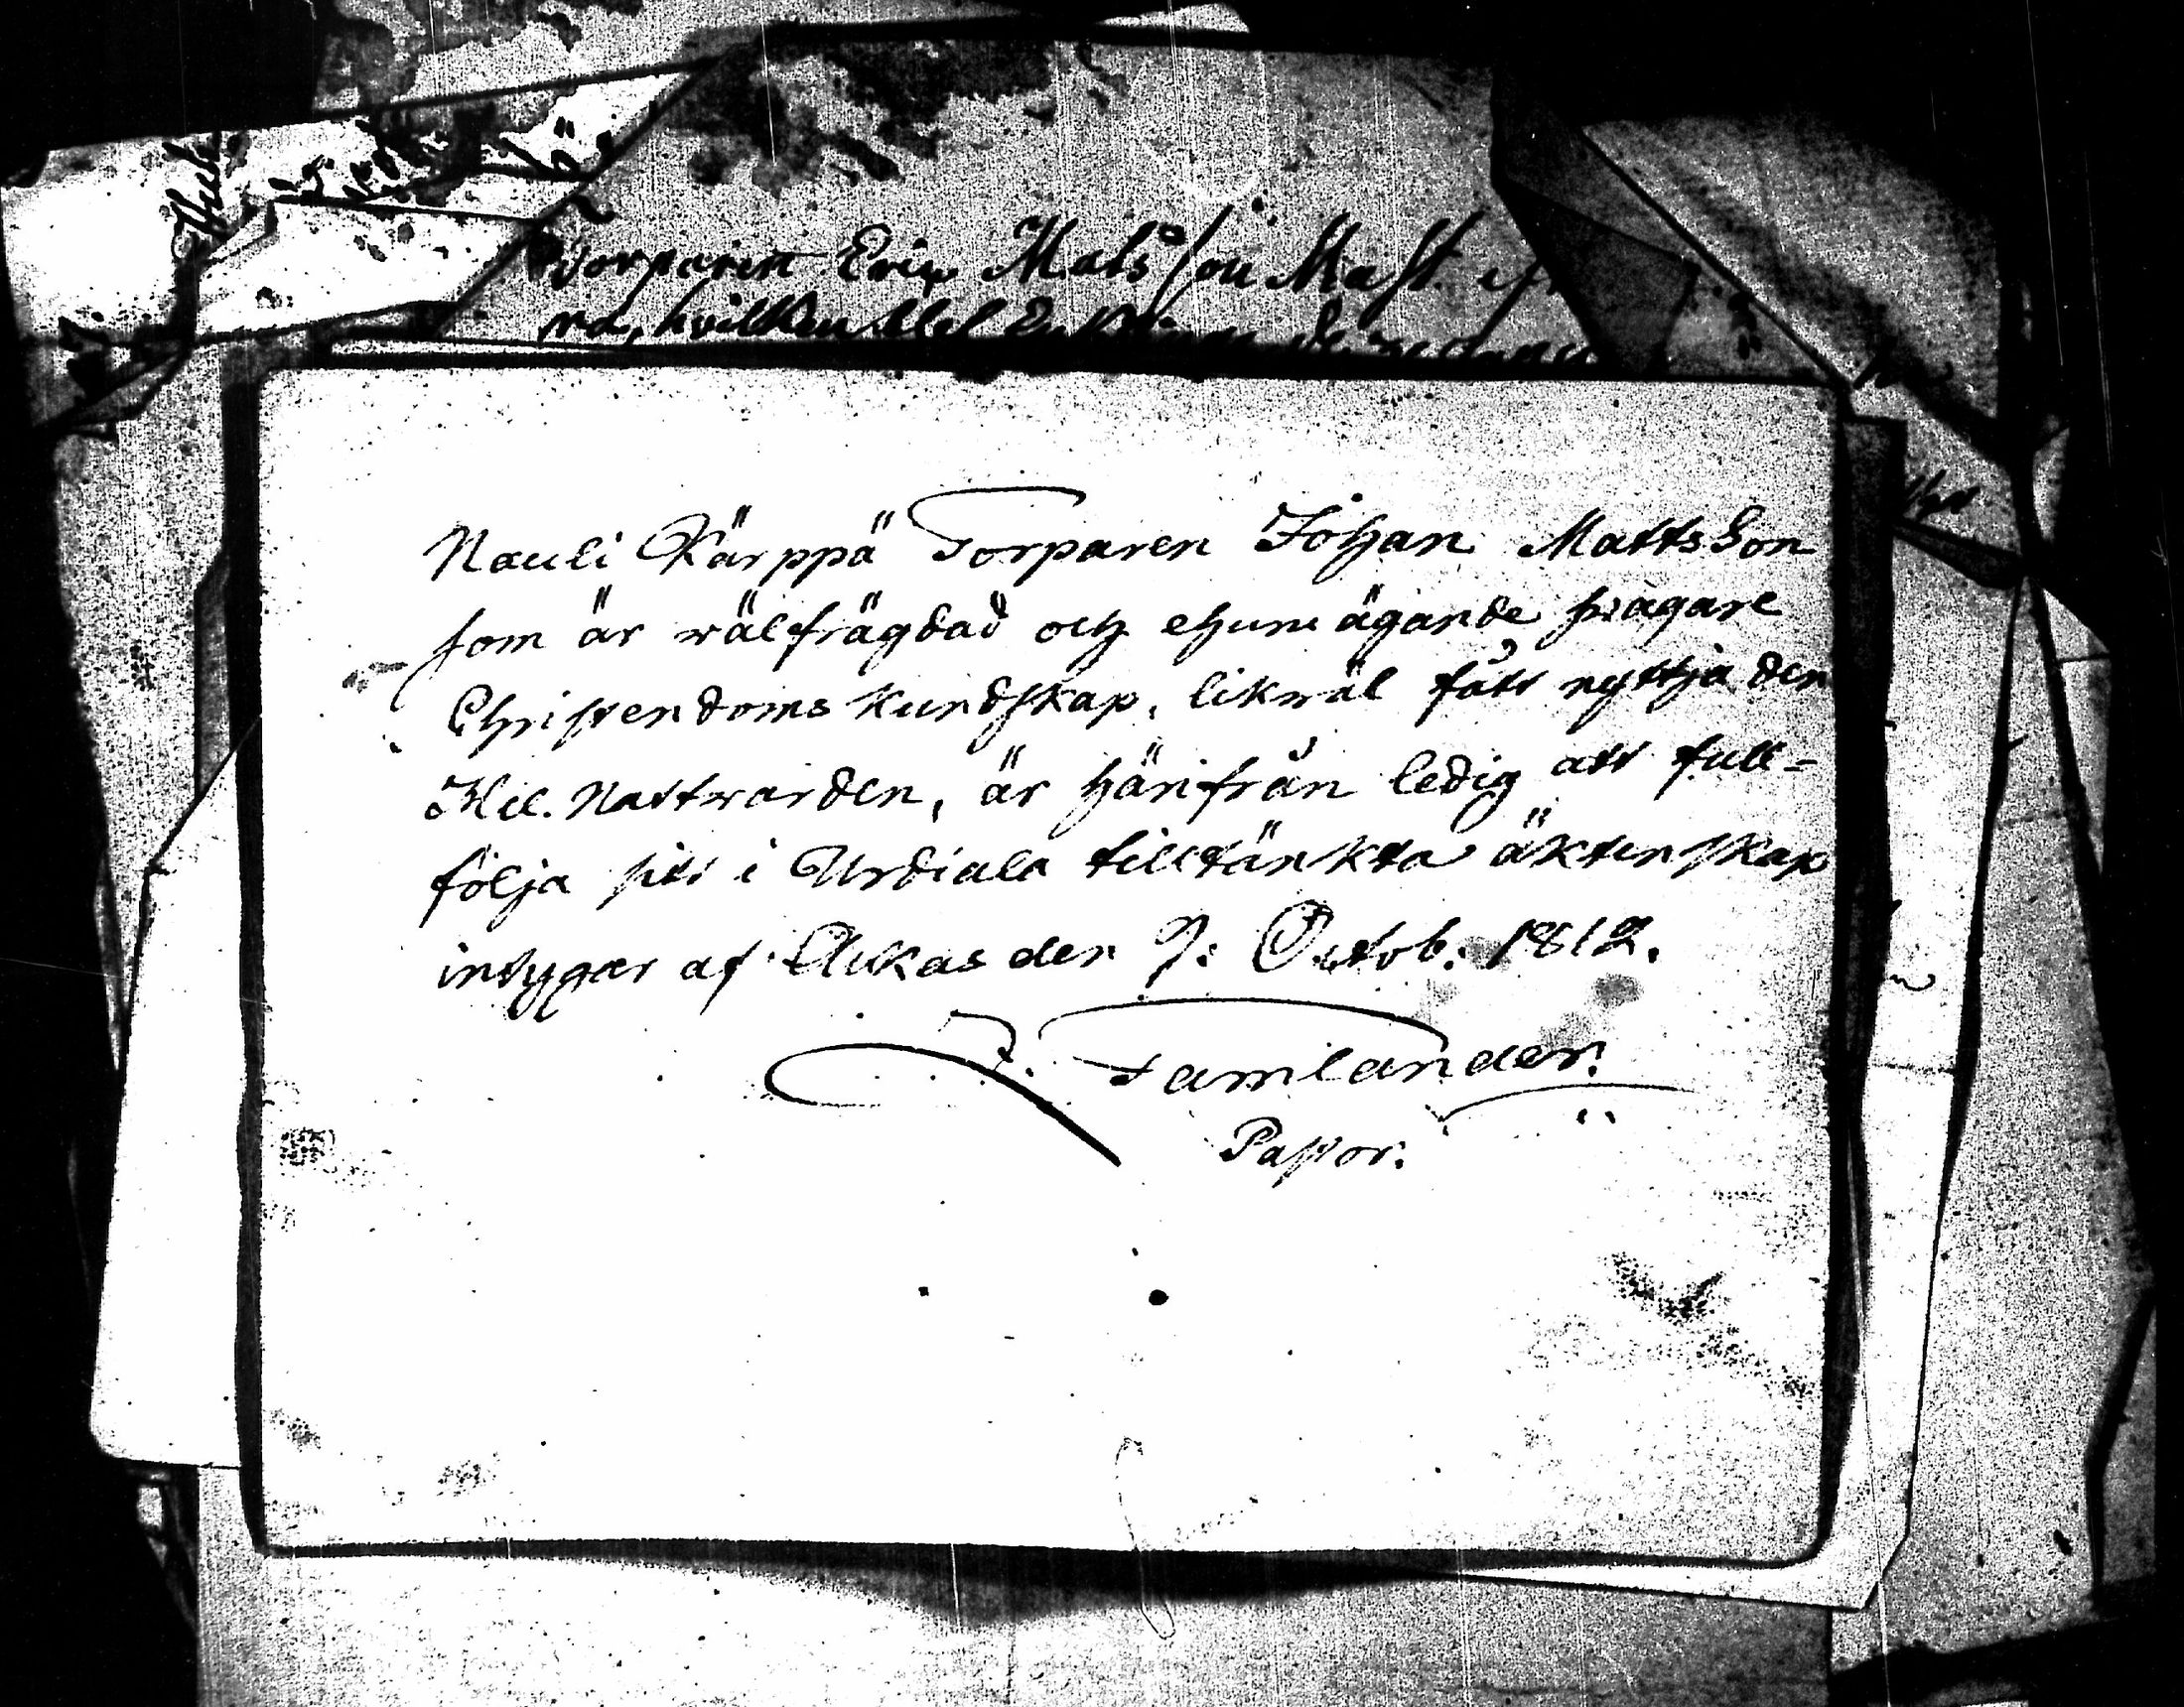 Torparen Eric Mats son Mast
ra, hvilken
Nauli Kärppä Torparen Johan MattsSon
som är wälfrägdad och ehuru ägande swagare
Christendoms kundskap, likwäl fått nyttja den
Hel. Nattwarden, är härifrån ledig att full-
följa sitt i Urdiala tilltänkta äktenskap
intygar af Akas den 9: Octob: 1812.
J. Tamlander.
Pastor.